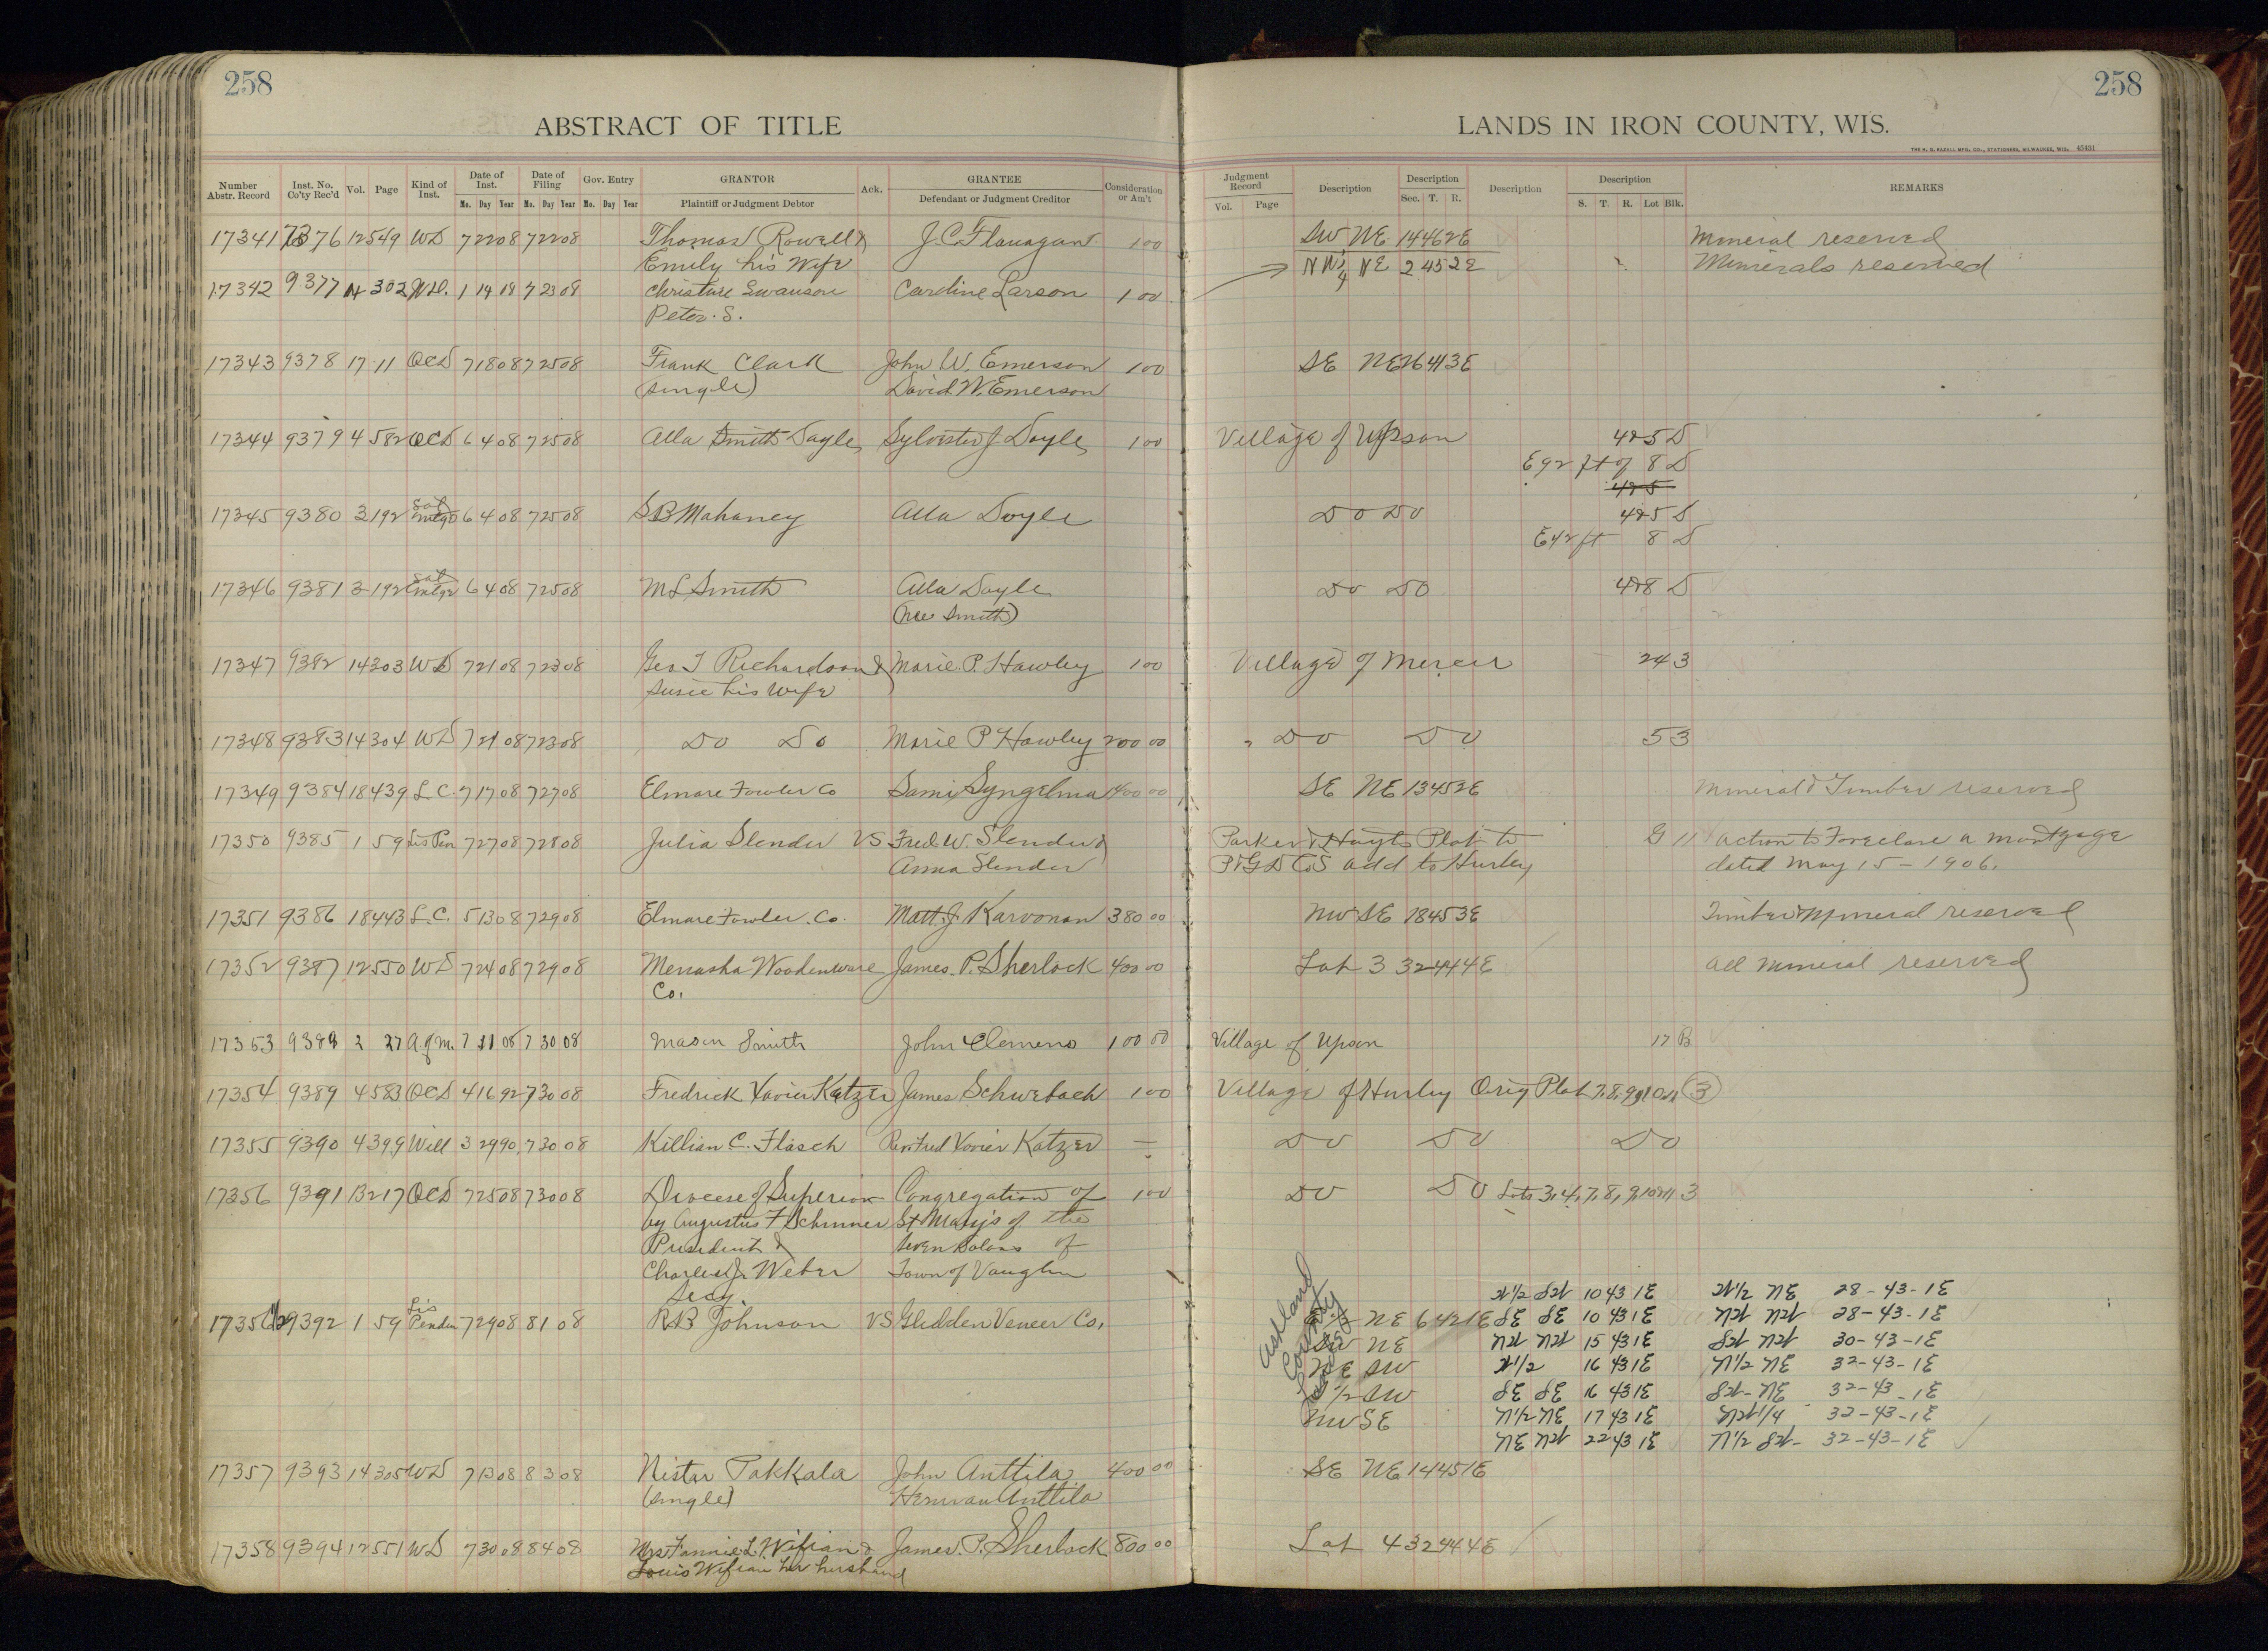 258
ABSTRACT OF TITLE
Number Abstr. Record Inst. No. Co'ty Rec'd Vol. Page Kind of Inst. Date of Inst. Mo. Day Year Date of Filing Mo. Day Year Gov. Entry Mo. Day Year GRANTOR Plaintiff or Judgment Debtor Ack. GRANTEE Defendant or Judgment Creditor Consideration or Am't
258
LANDS IN IRON COUNTY, WIS.
THE H. G. RAZALL MFG. CO., STATIONERS, MILWAUKEE, WIS. 45491
Judgment Record Vol. Page Description Description Sec. T. R. Description Description S. T. R. Lot Blk. REMARKS
17341 9376 12 549 WD 7 22 08 7 22 08 Thomas Rowell & J.C. Flanagan 1 00 SW NE 14 46 2E Mineral reserved
Emily his Wife NW¼ NE 2 45 2E Minerals reserved
17342 9377 14 302 W.D. 1 14 18 7 23 08 Christine Swanson Caroline Larson 1 00
Peter. S.
17343 9378 17 11 QCD 7 18 08 7 25 08 Frank Clark John W. Emerson 1 00 SE NE 26 41 3E
(single) David W. Emerson
17344 9379 4 582 QCD 6 4 08 7 25 08 Alla Smith Doyle Sylvester J Doyle 1 00 Village of Upson 4&5 D
E 92 ft of 8 D
4&5
17345 9380 3 192 Sat mtge 6 4 08 7 25 08 SB Mahaney Alla Doyle Do Do 4&5 D
E 42 ft 8 D
17346 9381 3 192 Sat mtge 6 4 08 7 25 08 M L Smith Alla Doyle Do Do 4&8 D
(nee Smith)
17347 9382 14 303 WD 7 21 08 7 23 08 Geo T Richardson & Marie P. Hawley 1 00 Village of Mercer 24 3
Susie his Wife
17348 9383 14 304 WD 7 21 08 7 23 08 Do Do Marie P Hawley 200 00 Do Do 5 3
17349 9384 18 439 L.C. 7 17 08 7 27 08 Elmore Fowler Co Sami Syngelma 400 00 SE NE 13 45 2E Mineral & Timber reserved
17350 9385 1 59 Lis Pen 7 27 08 7 28 08 Julia Slender VS Fred W. Slender & Parker & Hoyts Plat to G 11 Action to Foreclose a Mortgage
Anna Slender P&GD Co's add to Hurley dated May 15 - 1906.
17351 9386 18 443 L.C. 5 13 08 7 29 08 Elmore Fowler. Co. Matt. J. Karvonan 380 00 NW SE 18 45 3E Timber & Mineral reserved
17352 9387 12 550 WD 7 24 08 7 29 08 Menasha Woodenware James. P. Sherlock 400 00 Lot 3 32 44 4E All Mineral reserved
Co.
17353 9388 2 27 A.of M. 7 31 08 7 30 08 Mason Smith John Clemens 100 00 Village of Upson 17 B
17354 9389 4 583 QCD 4 16 92 7 30 08 Fredrick Xavier Katzer James Schwebach 1 00 Village of Hurley Orig Plat 7,8,9,10&11 3
17355 9390 4 399 Will 3 29 90 7 30 08 Killian C. Flasch Rev. Fred Xavier Katzer — Do Do Do
17356 9391 13 217 QCD 7 25 08 7 30 08 Diocese of Superior Congregation of 1 00 Do Do Lots 3,4,7,8,9,10&11 3
by Augustus F Schinner St Mary's of the
President & Seven Dolors of
Charles J. Weber Town of Vaughn
Secy.
Ashland County
N½ SW 10 43 1E N½ NE 28-43-1E
17356½ 9392 1 59 Lis Penden 7 29 08 8 1 08 R B Johnson VS Glidden Veneer Co. E½ NE 6 42 1E SE SE 10 43 1E NW NW 28-43-1E
SW NE NW NW 15 43 1E SW NW 30-43-1E
NE SW N½ 16 43 1E N½ NE 32-43-1E
S½ SW SE SE 16 43 1E SW-NE 32-43-1E
NW SE N½ NE 17 43 1E NW¼ 32-43-1E
NE NW 22 43 1E N½ SW- 32-43-1E
17357 9393 14 305 WD 7 13 08 8 3 08 Nistar Pakkala John Anttila 400 00 SE NE 14 45 1E
(single) Herman Anttila
17358 9394 12 551 WD 7 30 08 8 4 08 Mrs Fannie L. Wifian & James. P. Sherlock 800 00 Lot 4 32 44 4E
Louis Wifian her husband